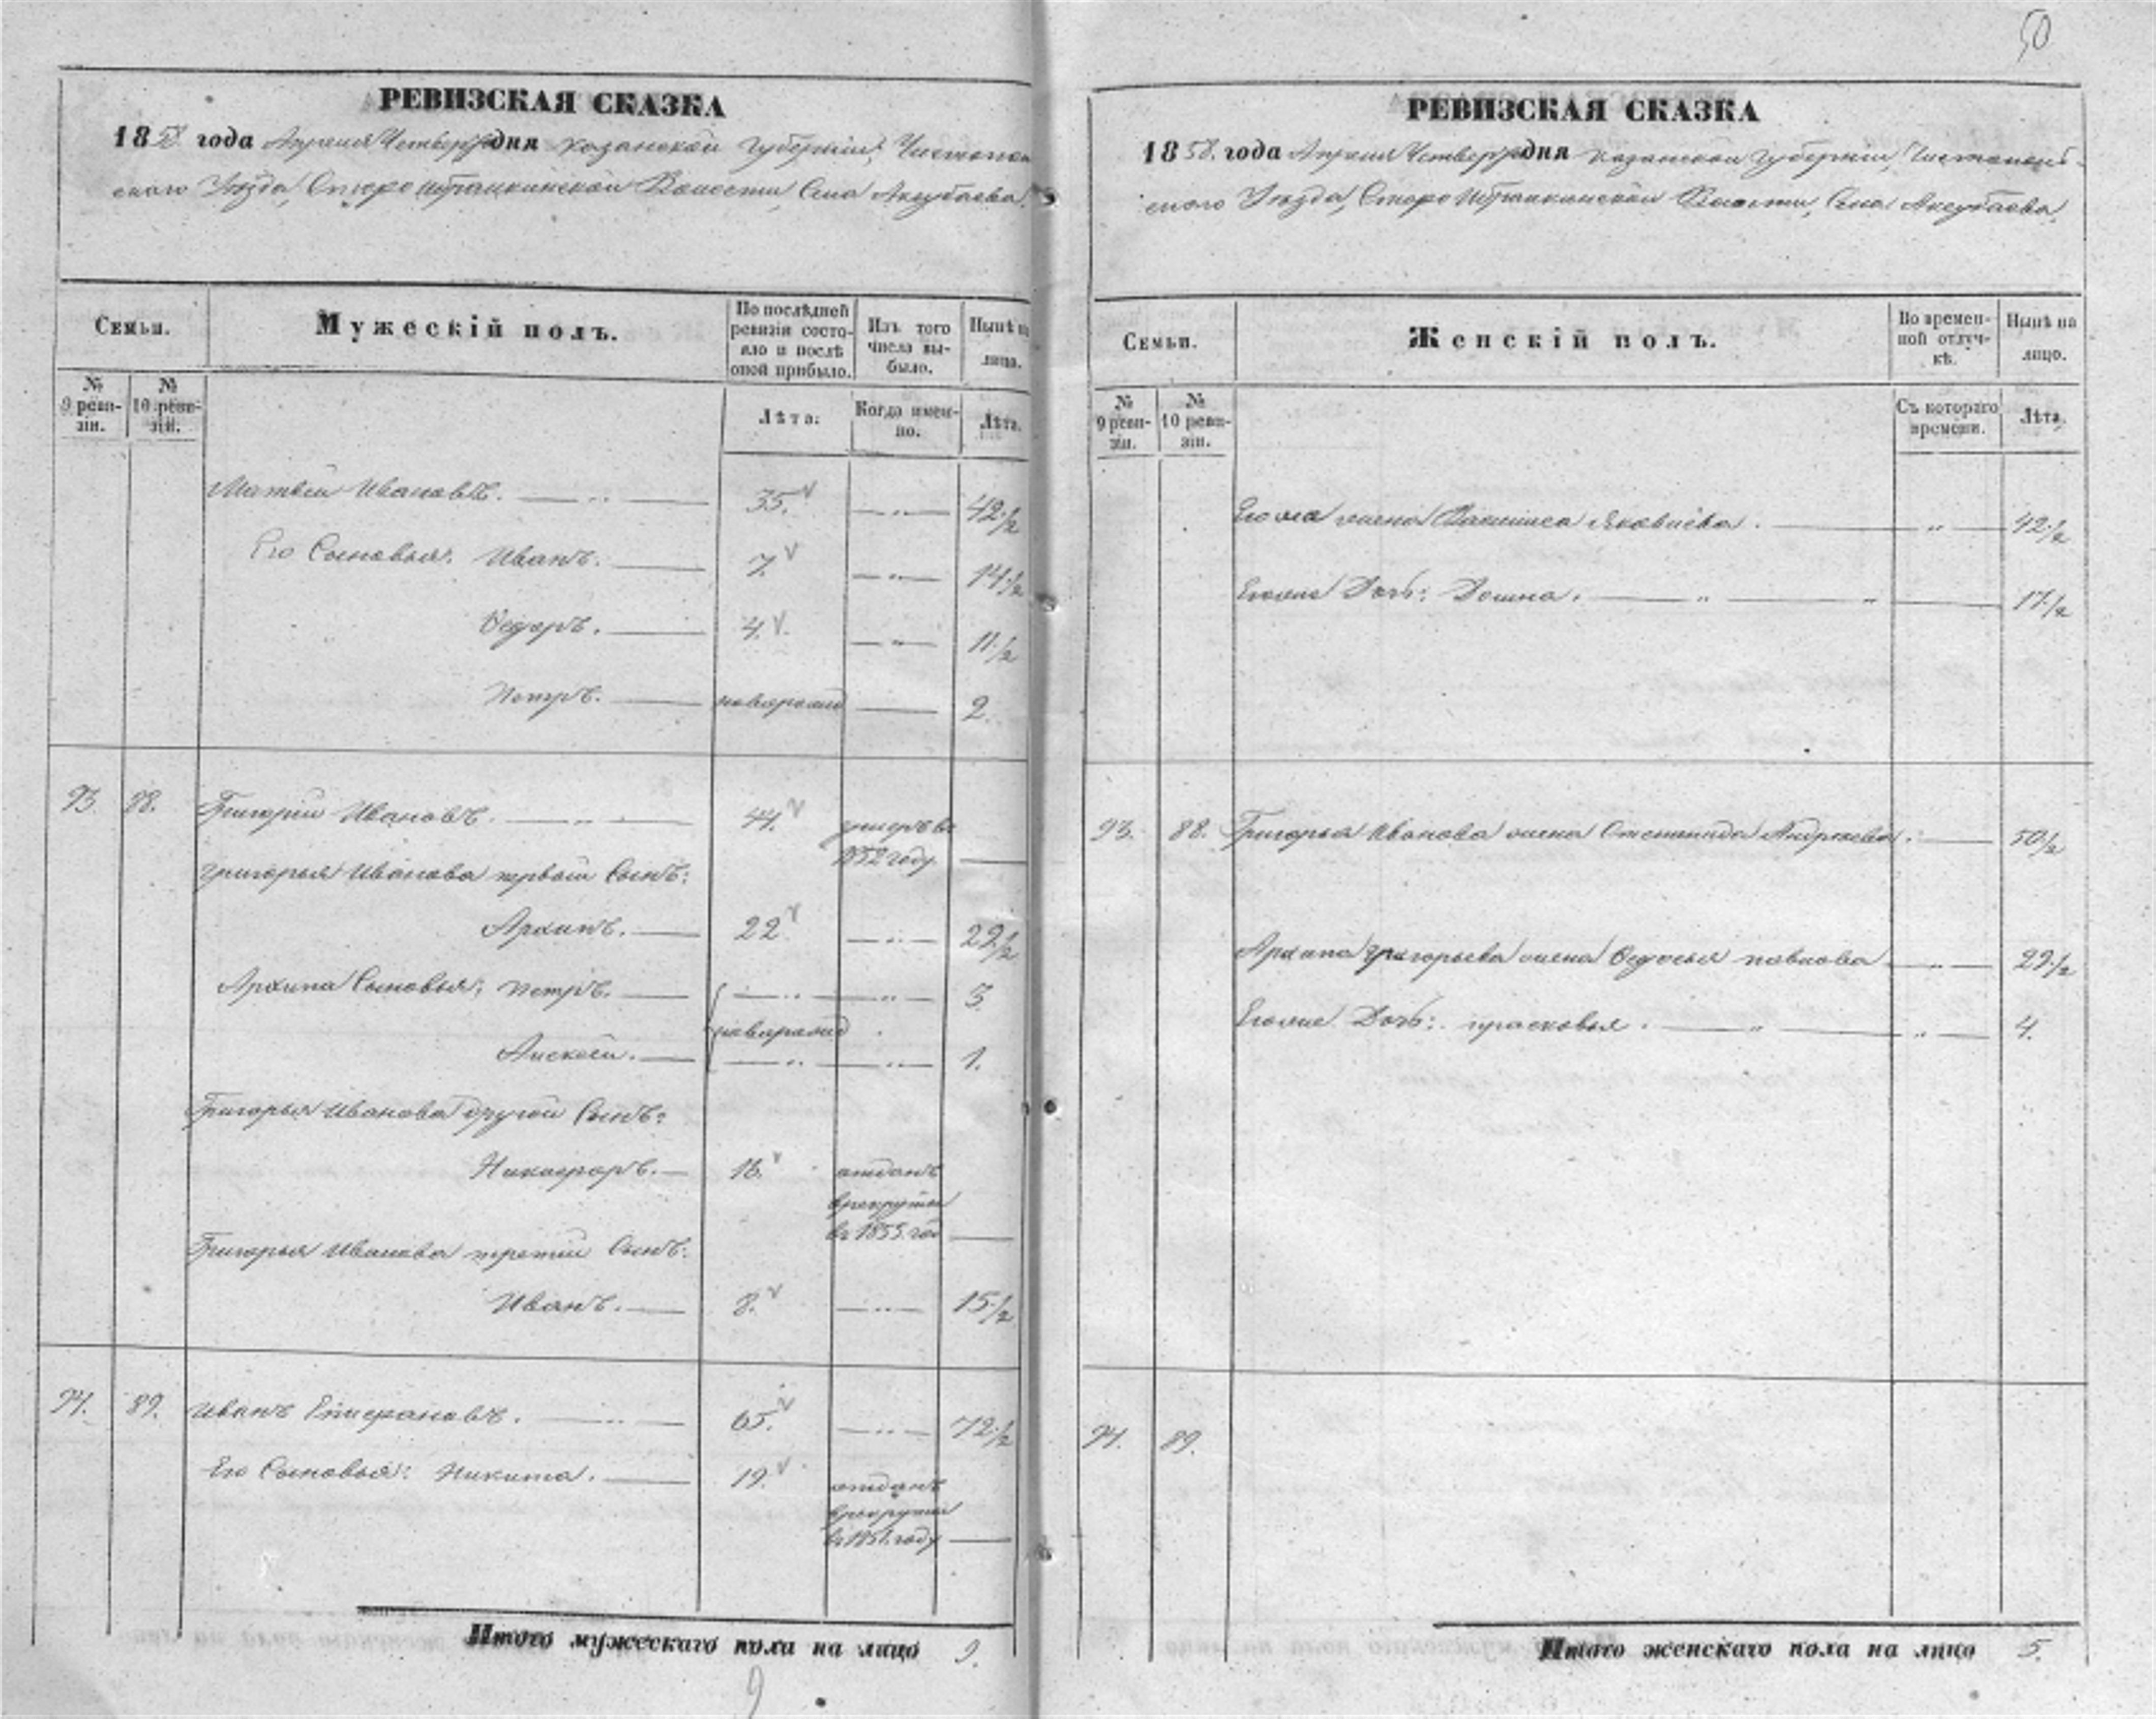 50
РЕВИЗСКАЯ СКАЗКА
1858 года Апреля Четверт дня Казанской Губернiи, Чистополь
скаго Уезда, Старо Волости, Села Аксубаева.
Семьи.
Мужескiй полъ.
По послѣдней ревизiи состояло и послѣ оной прибыло.
Изъ того числа выбыло.
Нынѣ на лицо.
№ 9 ревизiи.
№ 10 ревизiи.
Лѣта.
Когда именно.
Лѣта.
Матвей Ивановъ. 35. 42 1/2
Его Сыновья: Иванъ. 7. 14 1/2
Федоръ. 4. 11 1/2
Петръ. новорожд 2.
93. 88. Григорiй Ивановъ. 44. умеръ въ
1852 году.
Григорья Иванова первый Сынъ:
Архипъ. 22. 29 1/2
Архипа Сыновья: Петръ. 3
новорожд
Алексей. 1.
Григорья Иванова другой Сынъ:
Никифоръ. 16. отданъ
в рекруты
въ 1855 год
Григорья Иванова третiй Сынъ:
Иванъ. 8. 15 1/2
94. 89. Иванъ 65. 72 1/2
Его Сыновья: Никита. 19. отданъ
в рекруты
въ 1851 году
Итого мужескаго пола на лицо 9.
9
РЕВИЗСКАЯ СКАЗКА
1858. года Апреля Четверт дня Казанской Губернiи, Чистополь-
скаго Уезда, Старо Волости, Села Аксубаева.
Семьи.
Женскiй полъ.
Во временной отлучкѣ.
Нынѣ на лицо.
№ 9 ревизiи.
№ 10 ревизiи.
Съ котораго времени.
Лѣта.
жена Василиса Яковлева. 42 1/2
Дочь: Домна. 17 1/2
93. 88. Григорья Иванова жена Степанида Андреева. 50 1/2
Архипа Григорьева жена Федосья Павлова 29 1/2
Дочь: Прасковья. 4.
94. 89.
Итого женскаго пола на лицо 5.